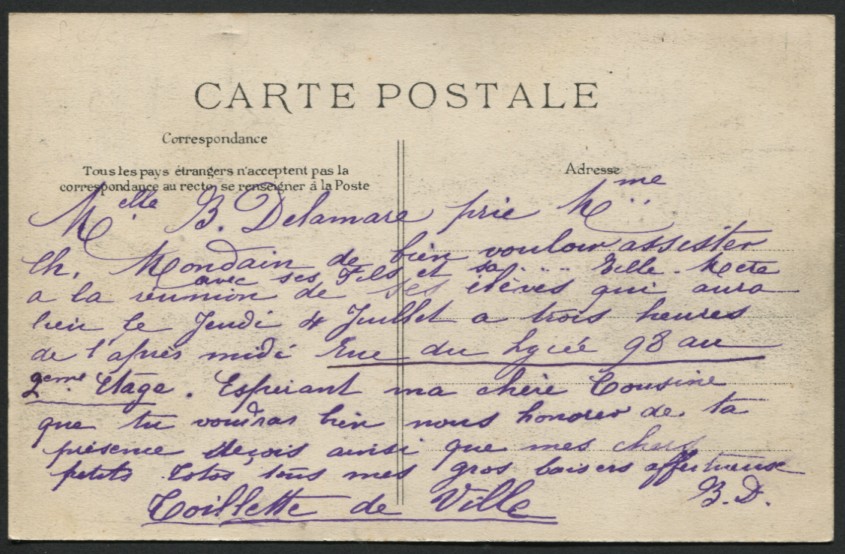 CARTE POSTALE
Correspondance
Tous les pays étrangers n'acceptent pas la
correspondance au recto, se renseigner à la Poste
Adresse
Melle B. Delamare prie Mme
Ch. Mondain de bien vouloir assister
avec ses Fils et sa Fille
a la réunion de ses élèves qui aura
lieu le Jeudi 4 Juillet a trois heures
de l'après midi Rue du Lycée 98 au
2eme Etage. Espérant ma chère Cousine
que tu voudras bien nous honorer de ta
présence reçois ainsi que mes chers
petits Totos tous mes gros baisers affectueuse
B. D.
Toillette de Ville